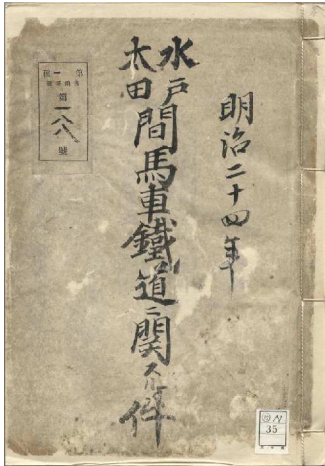 明治二十四年
水戸
太田
間馬車鐵道ニ関スル件
第一種
第
一八八
號
N
35